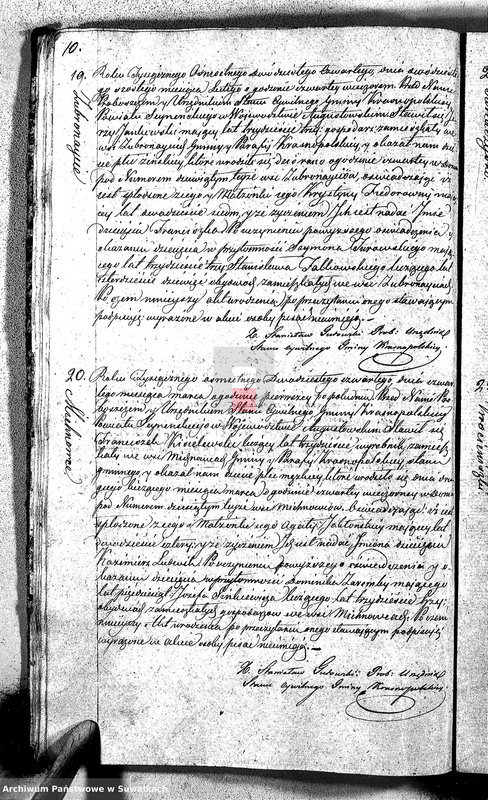 10.
19. Roku Tysiącznego Osmsetnego dwudziestego Czwartego, dnia dwudzieste-
go szostego miesiąca lutego o godzinie czwartey wieczorem. Przed Nami
Zubronaycie
Proboszczem y Urzędnikiem Stanu Cywilnego Gminy Krasnopolskiey
Powiatu Seynenskiego w Woiewodztwie Augustowskim Stawił się Je-
rzy Jankowski maiący lat trzydzieście trzy, gospodarz zamieszkały
we wsi Zubronaycie Gminy y Parafij Krasnopolskiey y okazał nam dzie-
cie płci żeńskiey ktore urodziło się dziś rano o godzinie czwartey w Dom
pod Numerem dziewiątym tuże wsi Zubronaycie, oswiadczaiąc iż
iest spłodzone z iego y Małżonki iego Krystyny Fedorowny ma-
iący lat dwadzieście siedm, y ze życzeniem Jch iest nadać Jmie
dziecięciu Franciszka Po uczynieniu powyższego oswiadczenia y
okazaniu dziecięcia w przytomności Szymona Turowskiego maią-
cego lat trzydzieście trzy, Stanisława liczącego lat
czterdzieście dziewięć obydwuch zamieszkałych we wsi Zubronaycie
Po czem ninieyszy akt urodzenia, po przeczytaniu onego stawaiącym
podpisany wyrażone w akcie osoby pisać nieumieią.
X. Stanisław Gutowski Prob. Urzędnik
Stanu cywilnego Gminy Krasnopolskiey
20. Roku Tysiącznego osmsetnego Dwudziestego czwartego, dnia czwar-
tego miesiąca marca o godzinie pierwszey po południu. Przed Nami Pro-
Michnowce
boszczem y Urzędnikiem Stanu Cywilnego Gminy Krasnopolskiey
Powiatu Seynenskiego w Woiewodztwie Augustowskim Stawił się
Franciszek Kisielewski liczący lat trzydzieście wyrobnik, zamiesz-
kały we wsi Michnowcach Gminy y Parafij Krasnopolskiey stanu
gminnego, y okazał nam dziecie płci męzkiey ktore urodziło się dnia dru-
giego bieżącego miesiąca marca o godzinie czwartey wieczorney w Dom
pod Numerem dziesiątym tuże wsi Michnowcow. Oswiadczaiąc iż iest
spłodzone z iego y Małżonki iego Agaty Jabłonskiey maiącey lat
dwadzieście cztery; y ze życzeniem Jch iest nadać Jmiona dziecięciu
Kazimierz Ludwik Po uczynieniu powyższego oswiadczenia y o-
kazaniu dziecięcia w przytomności Dominika Zaremby maiącego
lat piędziesiąt, Jozefa Sinkiewicza liczącego lat trzydzieście trzy
obydwuch zamieszkałych gospodarzow we wsi Michnowcach. Po czem
ninieyszy Akt urodzenia po przeczytaniu onego stawaiącym podpisany
wyrażone w akcie osoby pisać nieumieią.
X. Stanisław Gutowski Prob. Urzędnik
Stanu cywilnego Gminy Krasnopolskiey
Archiwum Państwowe w Suwałkach